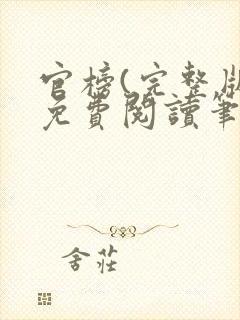 官榜(完整版
免費閱讀筆
舍莊